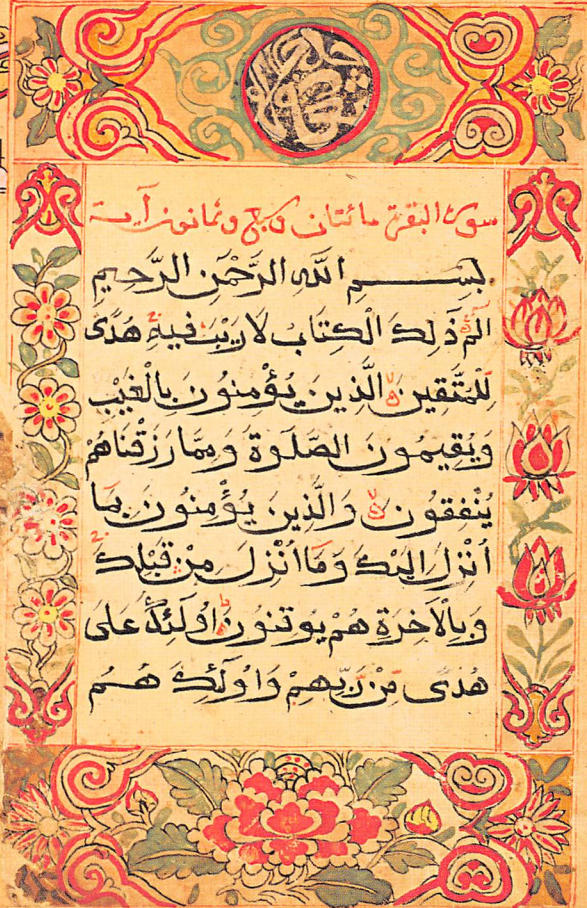 سورة البقرة مائتان وسبع وثمانون آية
بِسْمِ اللَّهِ الرَّحْمَنِ الرَّحِيمِ
الم ذَلِكَ الْكِتَابُ لَا رَيْبَ فِيهِ هُدًى
لِلْمُتَّقِينَ الَّذِينَ يُؤْمِنُونَ بِالْغَيْبِ
وَيُقِيمُونَ الصَّلَوةَ وَمِمَّا رَزَقْنَاهُمْ
يُنْفِقُونَ وَالَّذِينَ يُؤْمِنُونَ بِمَا
اُنْزِلَ اِلَيْكَ وَمَا اُنْزِلَ مِنْ قَبْلِكَ
وَبِالْاَخِرَةِ هُمْ يُوقِنُونَ اُولَئِكَ عَلَى
هُدًى مِنْ رَبِّهِمْ وَاُولَئِكَ هُمُ